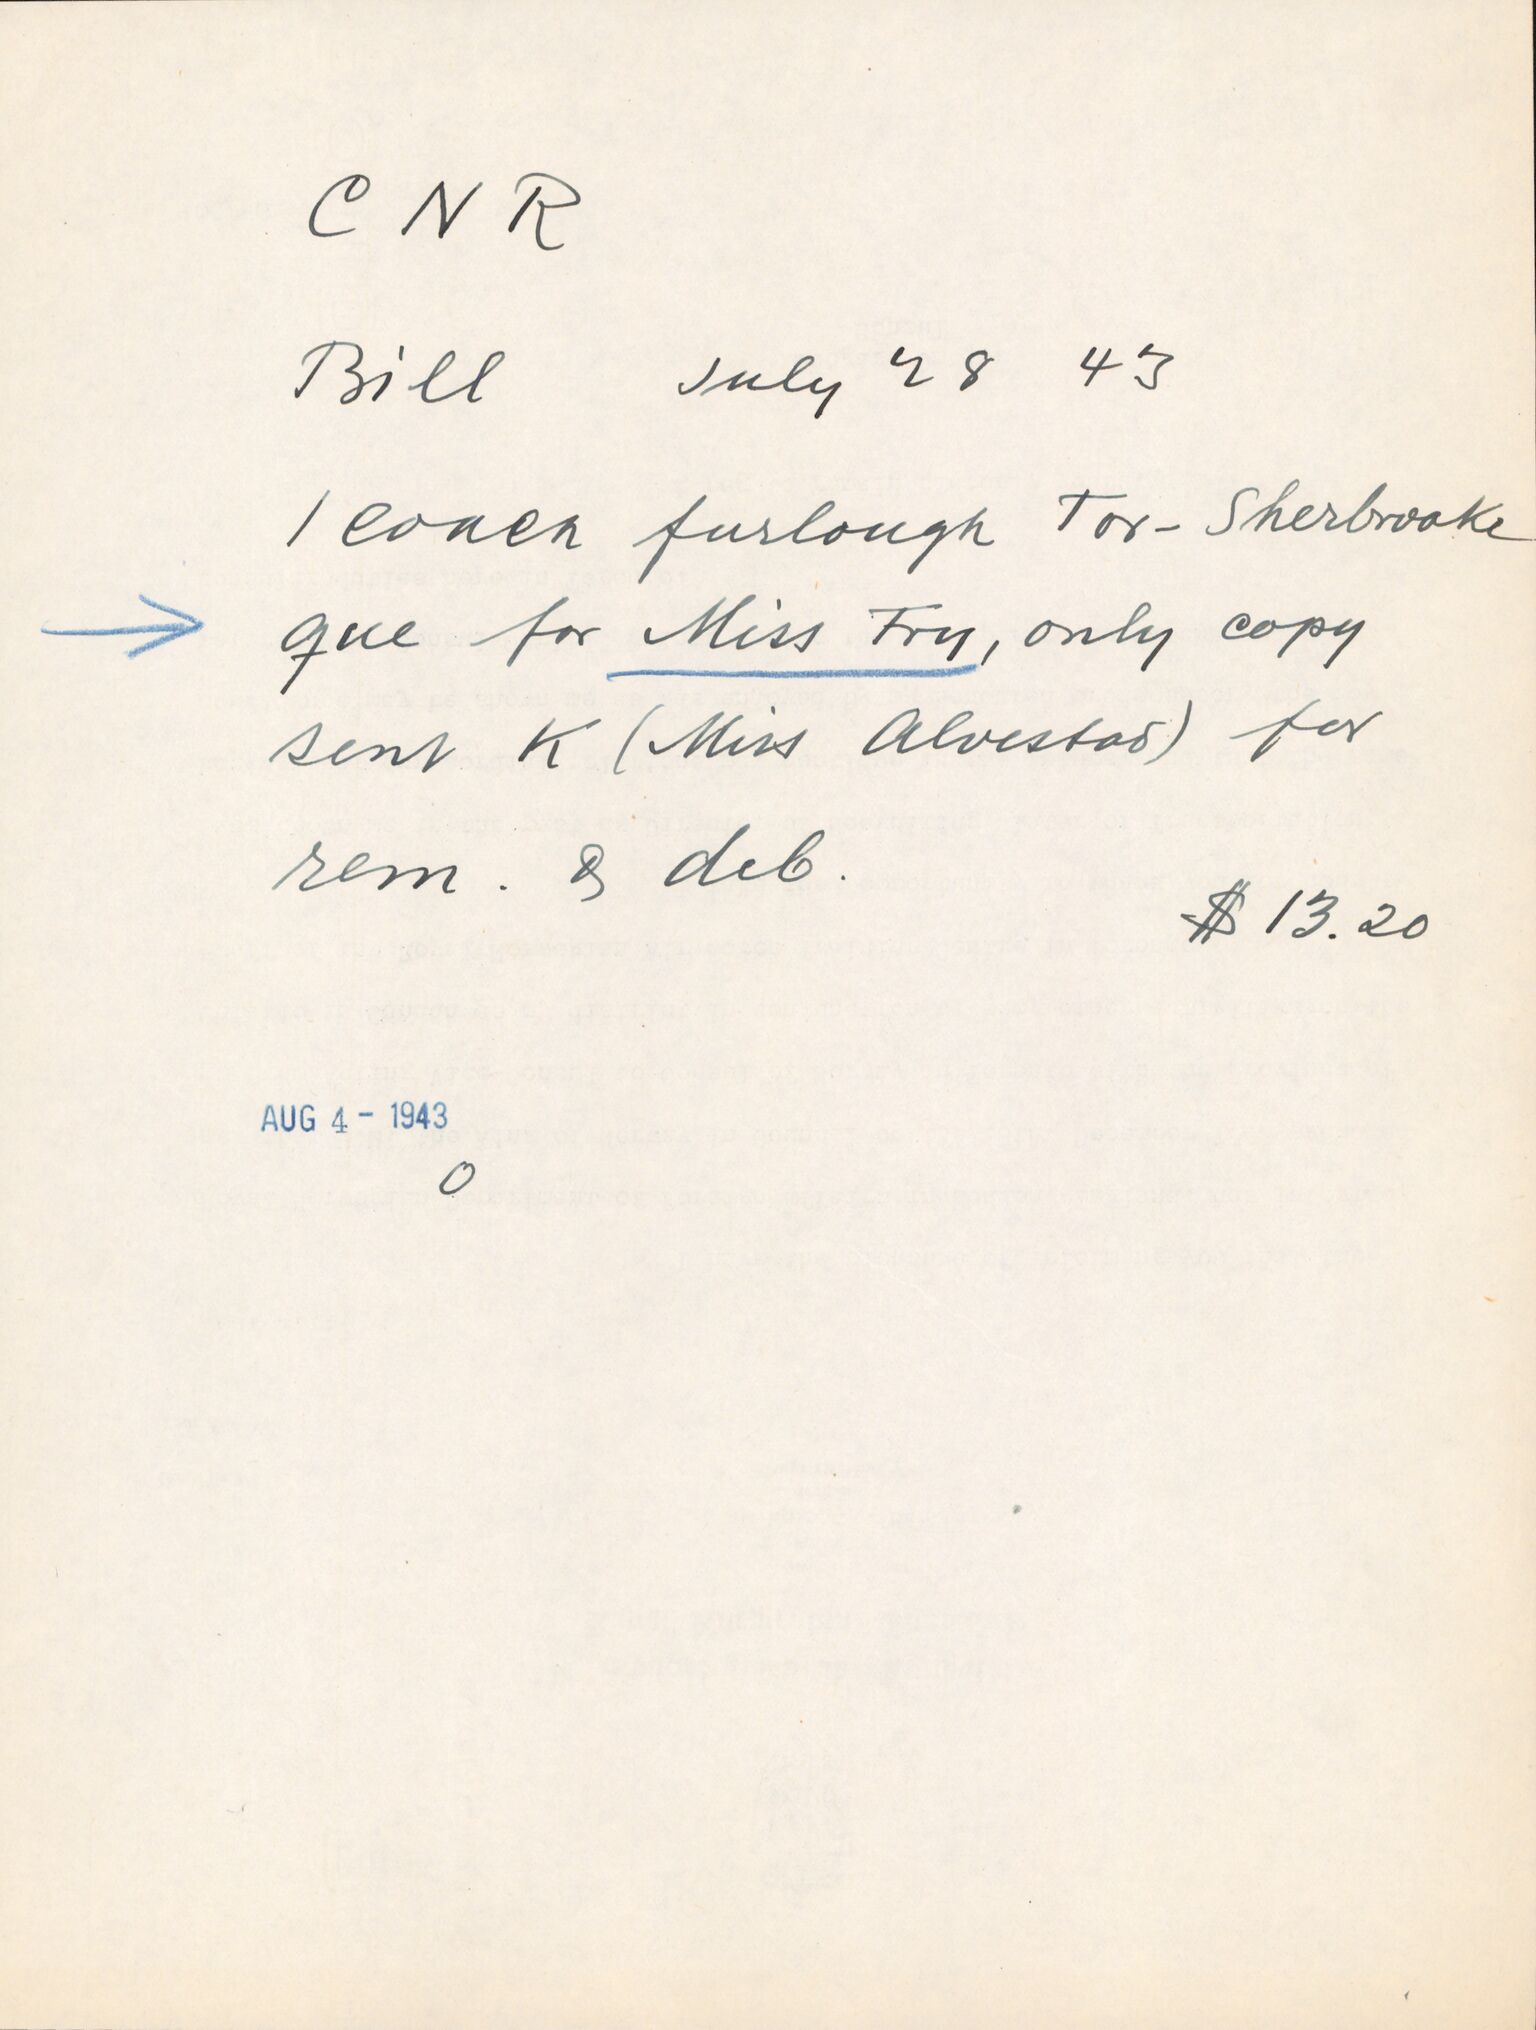 C N R
Bill July 28 43
1 coach furlough Tor- Sherbrooke
que for Miss Fry, only copy
sent K (Miss Alvestad) for
rem. & deb.
$ 13.20
AUG 4 - 1943
O